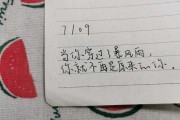 7/09
当你穿过了暴风雨，
你就不再是原来的你。